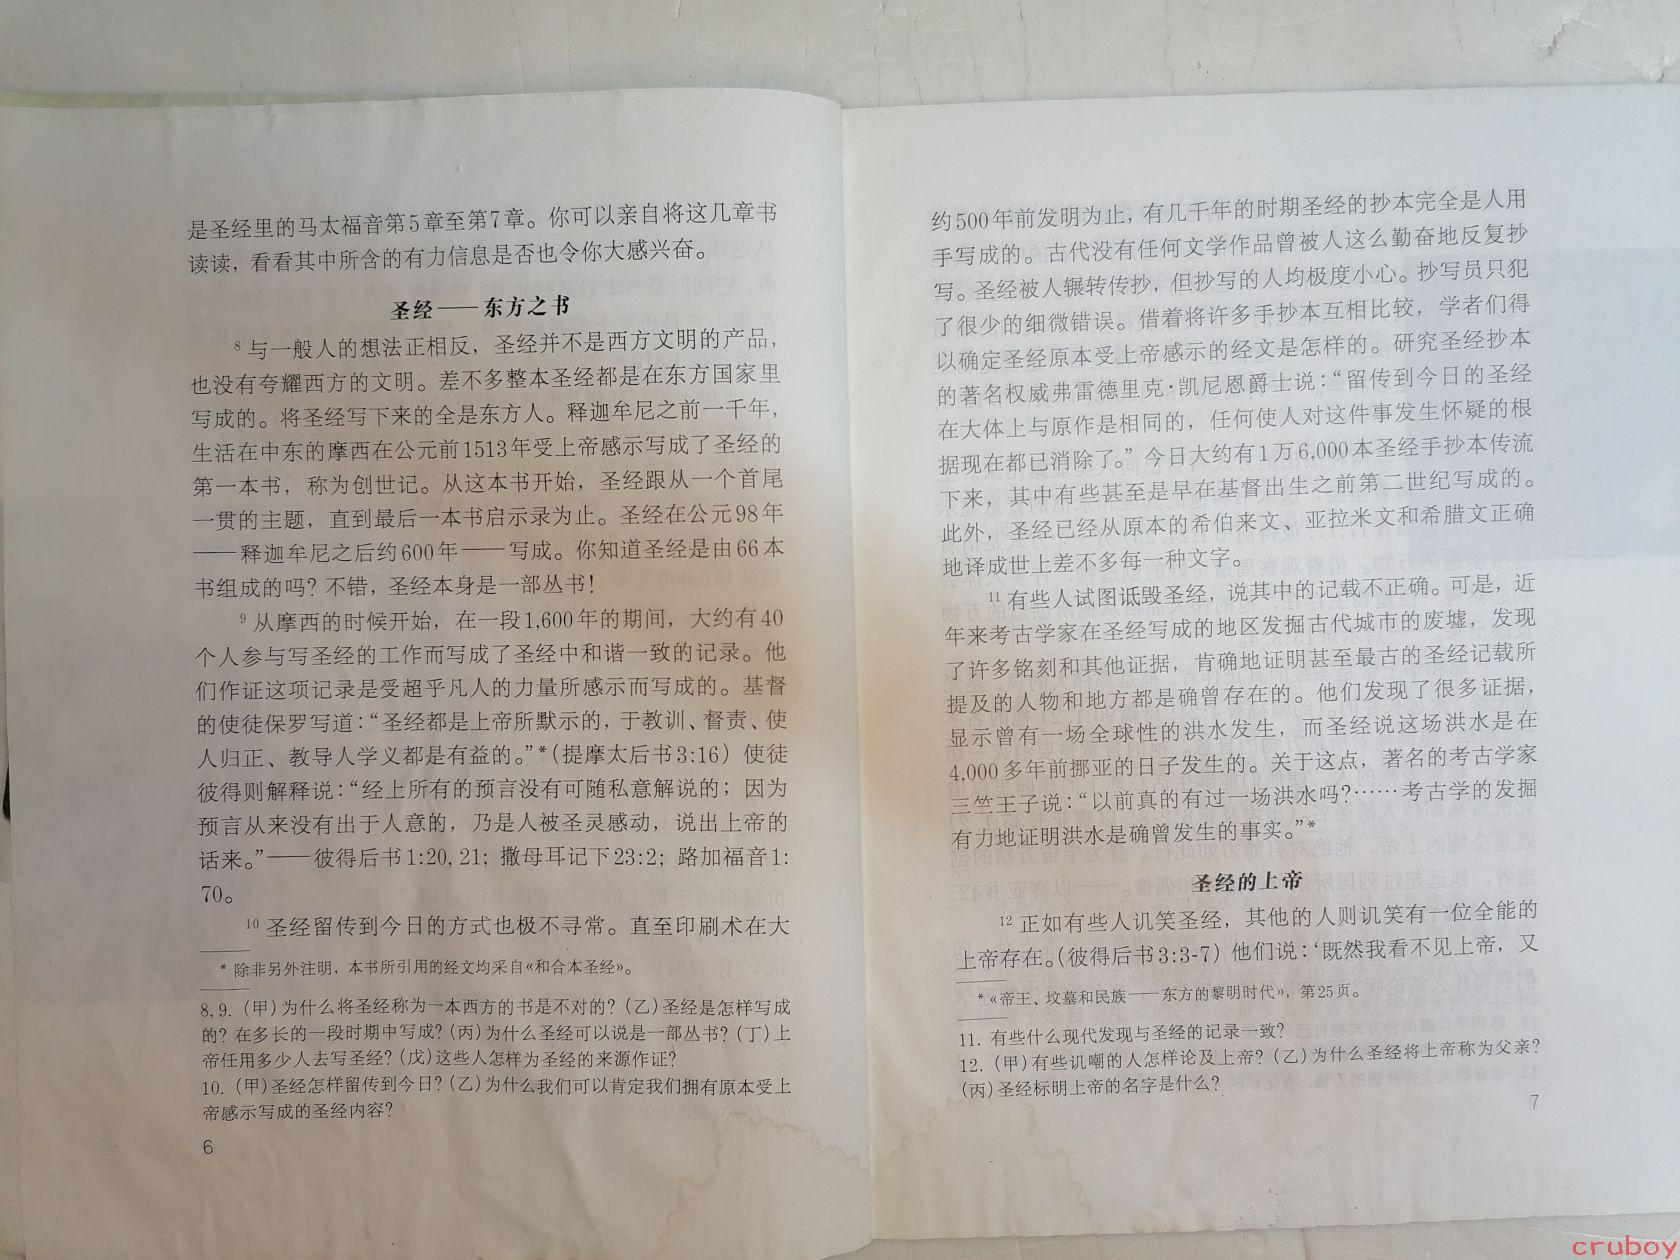 是圣经里的马太福音第5章至第7章。你可以亲自将这几章书
读读，看看其中所含的有力信息是否也令你大感兴奋。
圣经——东方之书
8 与一般人的想法正相反，圣经并不是西方文明的产品，
也没有夸耀西方的文明。差不多整本圣经都是在东方国家里
写成的。将圣经写下来的全是东方人。释迦牟尼之前一千年，
生活在中东的摩西在公元前1513年受上帝感示写成了圣经的
第一本书，称为创世记。从这本书开始，圣经跟从一个首尾
一贯的主题，直到最后一本书启示录为止。圣经在公元98年
——释迦牟尼之后约600年——写成。你知道圣经是由66本
书组成的吗？不错，圣经本身是一部丛书！
9 从摩西的时候开始，在一段1,600年的期间，大约有40
个人参与写圣经的工作而写成了圣经中和谐一致的记录。他
们作证这项记录是受超乎凡人的力量所感示而写成的。基督
的使徒保罗写道：“圣经都是上帝所默示的，于教训、督责、使
人归正、教导人学义都是有益的。”*（提摩太后书3:16）使徒
彼得则解释说：“经上所有的预言没有可随私意解说的；因为
预言从来没有出于人意的，乃是人被圣灵感动，说出上帝的
话来。”——彼得后书1:20, 21；撒母耳记下23:2；路加福音1:
70。
10 圣经留传到今日的方式也极不寻常。直至印刷术在大
* 除非另外注明，本书所引用的经文均采自《和合本圣经》。
8,9.（甲）为什么将圣经称为一本西方的书是不对的？（乙）圣经是怎样写成
的？在多长的一段时期中写成？（丙）为什么圣经可以说是一部丛书？（丁）上
帝任用多少人去写圣经？（戊）这些人怎样为圣经的来源作证？
10.（甲）圣经怎样留传到今日？（乙）为什么我们可以肯定我们拥有原本受上
帝感示写成的圣经内容？
6
约500年前发明为止，有几千年的时期圣经的抄本完全是人用
手写成的。古代没有任何文学作品曾被人这么勤奋地反复抄
写。圣经被人辗转传抄，但抄写的人均极度小心。抄写员只犯
了很少的细微错误。借着将许多手抄本互相比较，学者们得
以确定圣经原本受上帝感示的经文是怎样的。研究圣经抄本
的著名权威弗雷德里克·凯尼恩爵士说：“留传到今日的圣经
在大体上与原作是相同的，任何使人对这件事发生怀疑的根
据现在都已消除了。”今日大约有1万6,000本圣经手抄本传流
下来，其中有些甚至是早在基督出生之前第二世纪写成的。
此外，圣经已经从原本的希伯来文、亚拉米文和希腊文正确
地译成世上差不多每一种文字。
11 有些人试图诋毁圣经，说其中的记载不正确。可是，近
年来考古学家在圣经写成的地区发掘古代城市的废墟，发现
了许多铭刻和其他证据，肯确地证明甚至最古的圣经记载所
提及的人物和地方都是确曾存在的。他们发现了很多证据，
显示曾有一场全球性的洪水发生，而圣经说这场洪水是在
4,000多年前挪亚的日子发生的。关于这点，著名的考古学家
三竺王子说：“以前真的有过一场洪水吗？……考古学的发掘
有力地证明洪水是确曾发生的事实。”*
圣经的上帝
12 正如有些人讥笑圣经，其他的人则讥笑有一位全能的
上帝存在。（彼得后书3:3-7）他们说：‘既然我看不见上帝，又
* 《帝王、坟墓和民族——东方的黎明时代》，第25页。
11. 有些什么现代发现与圣经的记录一致？
12.（甲）有些讥嘲的人怎样论及上帝？（乙）为什么圣经将上帝称为父亲？
（丙）圣经标明上帝的名字是什么？
7
cruboy